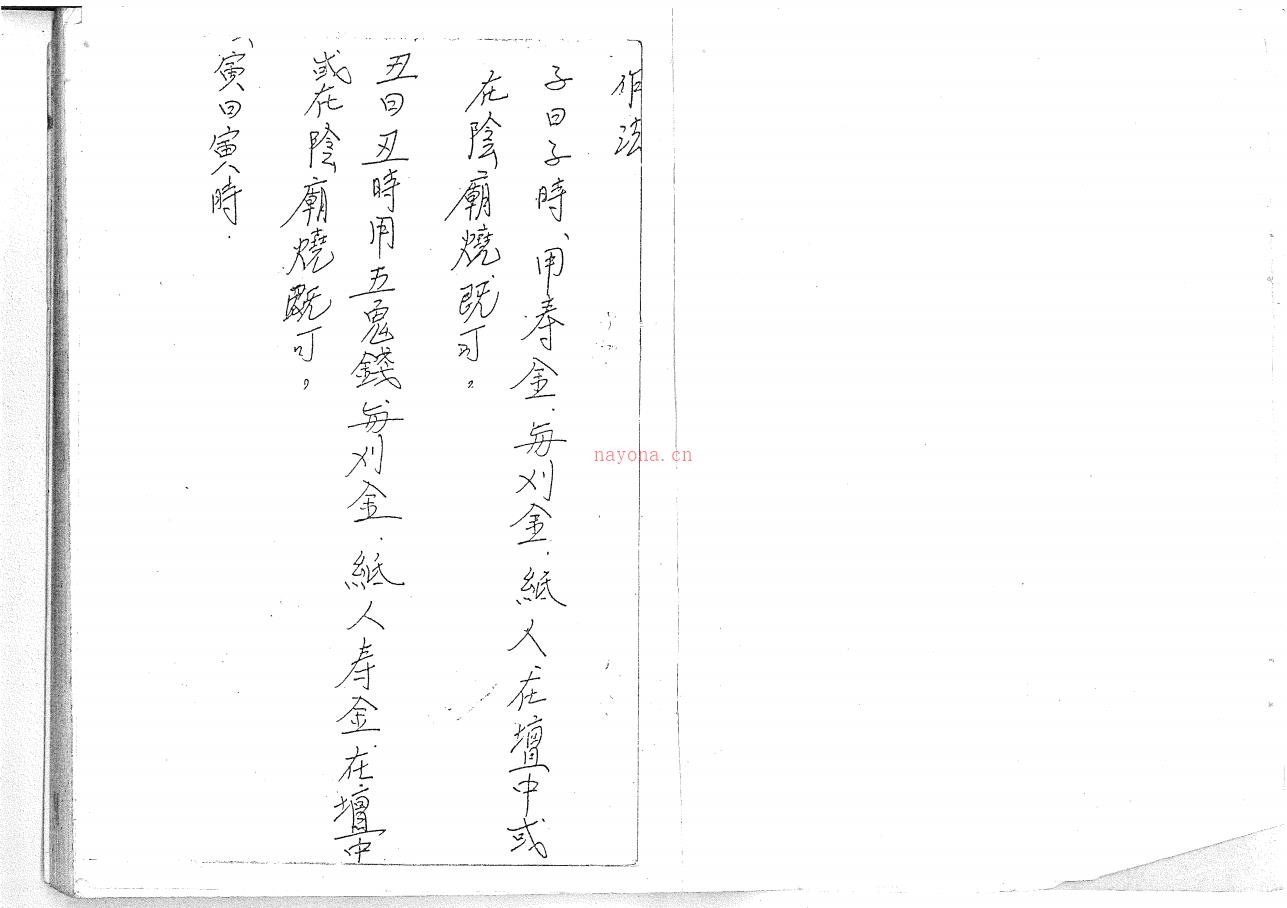 作法
子日子時、用寿金.每刈金.紙人在壇中或
在陰廟燒既可。
丑日丑時用五鬼錢每刈金.紙人寿金在壇中
或在陰廟燒既可。
寅日寅時.
nayona.cn